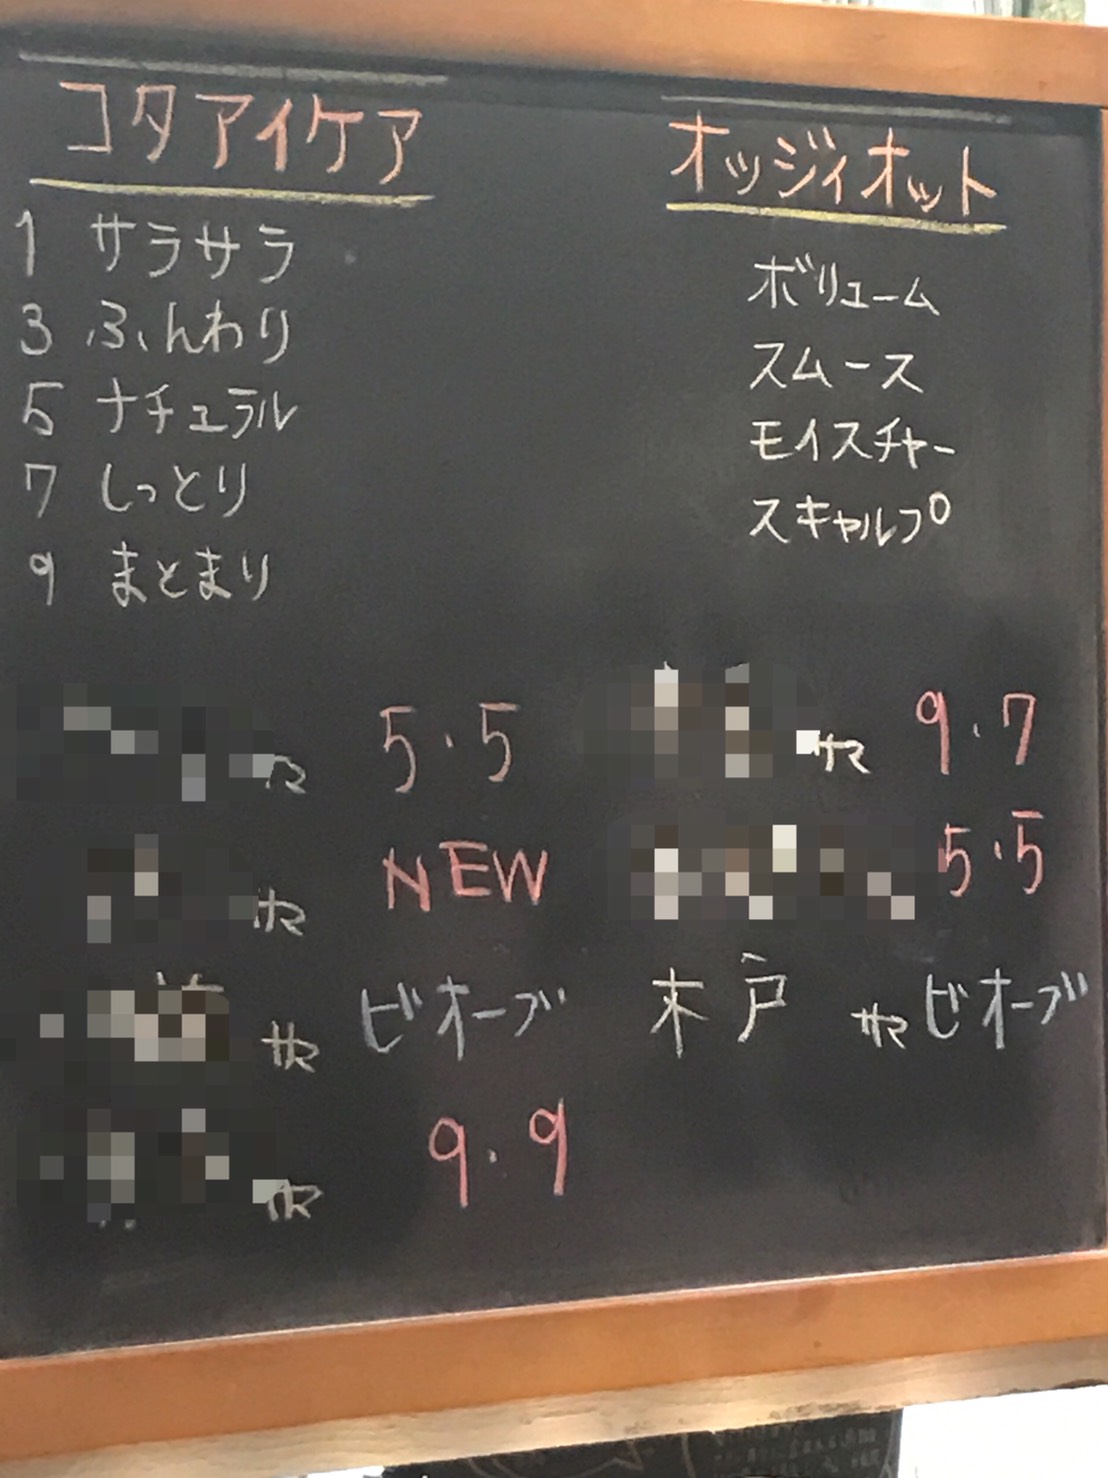 コタアイケア
1 サラサラ
3 ふんわり
5 ナチュラル
7 しっとり
9 まとまり
オッジィオット
ボリューム
スムース
モイスチャー
スキャルプ
サマ 5・5
サマ NEW
サマ ビオーブ
サマ 9.9
サマ 9.7
5・5
木戸 サマ ビオーブ